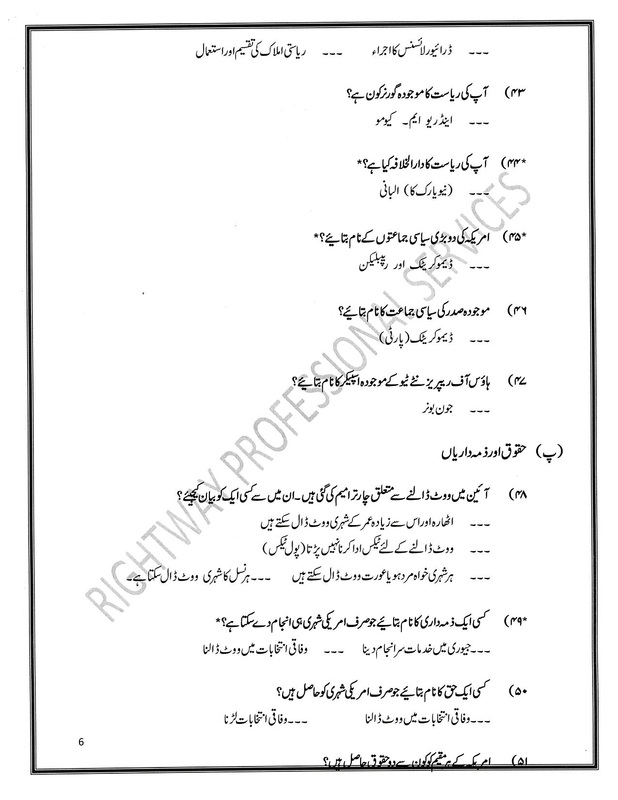 --- ڈرائیور لائسنس کا اجراء --- ریاستی املاک کی تقسیم اور استعمال
۴۳) آپ کی ریاست کا موجودہ گورنر کون ہے؟
--- اینڈریو ایم۔ کیومو
*۴۴) آپ کی ریاست کا دارالخلافہ کیا ہے؟*
--- (نیویارک کا) البانی
*۴۵) امریکہ کی دو بڑی سیاسی جماعتوں کے نام بتائیے؟*
--- ڈیموکریٹک اور ریپبلیکن
۴۶) موجودہ صدر کی سیاسی جماعت کا نام بتائیے؟
--- ڈیموکریٹک (پارٹی)
۴۷) ہاؤس آف ریپریزنٹے ٹیو کے موجودہ اسپیکر کا نام بتائیے؟
--- جون بونر
(پ) حقوق اور ذمہ داریاں
۴۸) آئین میں ووٹ ڈالنے سے متعلق چار ترامیم کی گئی ہیں۔ ان میں سے کسی ایک کو بیان کیجیئے؟
--- اٹھارہ اور اس سے زیادہ عمر کے شہری ووٹ ڈال سکتے ہیں
--- ووٹ ڈالنے کے لئے ٹیکس ادا کرنا نہیں پڑتا (پول ٹیکس)
--- ہر شہری خواہ مرد ہو یا عورت ووٹ ڈال سکتے ہیں --- ہر نسل کا شہری ووٹ ڈال سکتا ہے۔
*۴۹) کسی ایک ذمہ داری کا نام بتائیے جو صرف امریکی شہری ہی انجام دے سکتا ہے؟*
--- جیوری میں خدمات سرانجام دینا --- وفاقی انتخابات میں ووٹ ڈالنا
۵۰) کسی ایک حق کا نام بتائیے جو صرف امریکی شہری کو حاصل ہیں؟
--- وفاقی انتخابات میں ووٹ ڈالنا --- وفاقی انتخابات لڑنا
۵۱) امریکہ کے ہر مقیم کو کون سے دو حقوق حاصل ہیں؟
6
RIGHTWAY PROFESSIONAL SERVICES